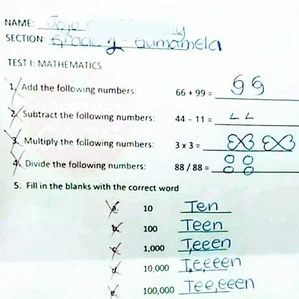 NAME: Jojo
SECTION: Grade 2 - Gumamela
TEST I: MATHEMATICS
1. Add the following numbers: 66 + 99 = 99
2. Subtract the following numbers: 44 - 11 = LL
3. Multiply the following numbers: 3 x 3 = 8X3 8X3
4. Divide the following numbers: 88 / 88 = 0 0
0 0
5. Fill in the blanks with the correct word
10 Ten
100 Teen
1,000 Teeen
10,000 Teeeen
100,000 Teeeeen